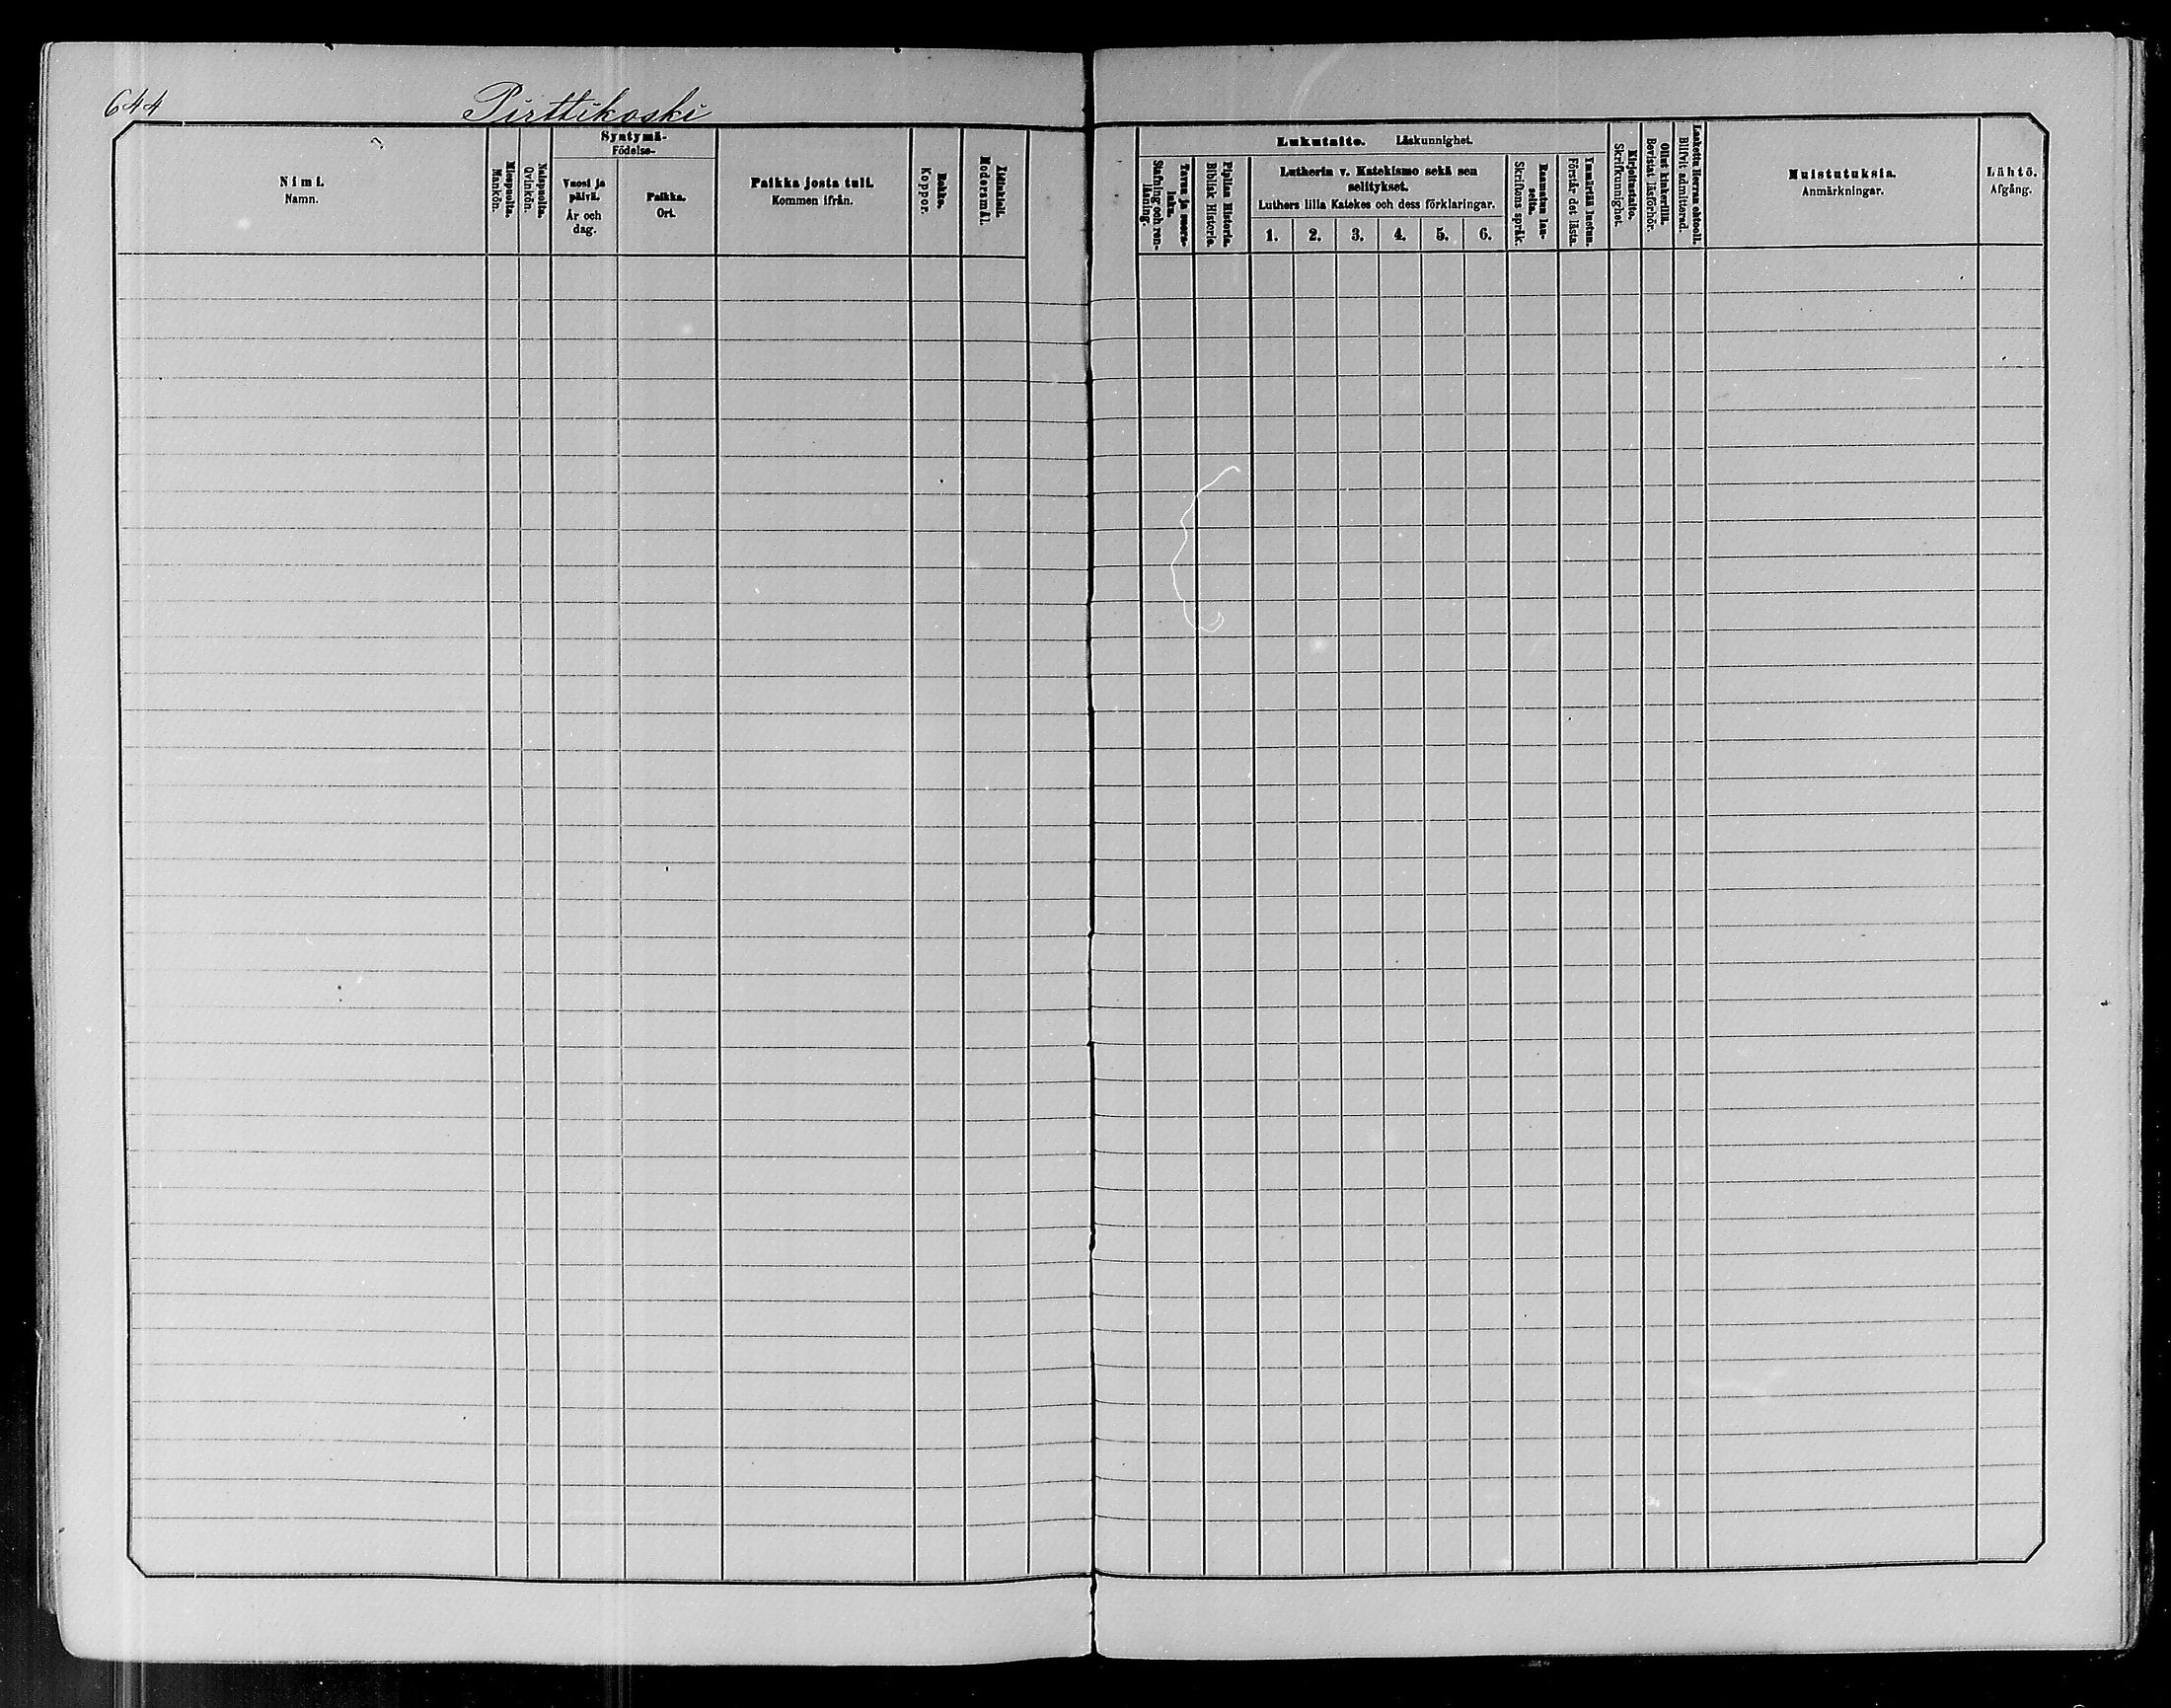 644
Pirttikoski
Nimi.
Namn.
Miespuolia.
Mankön.
Naispuolia.
Qvinkön.
Syntymä-
Födelse-
Vuosi ja
päivä.
År och
dag.
Paikka.
Ort.
Paikka josta tuli.
Kommen ifrån.
Rokko.
Koppor.
Äidinkieli.
Modersmål.
Lukutaito. Läskunnighet.
Tavuu ja suora-
luku.
Stafning och ren-
läsning.
Piplian Historia.
Biblisk Historia.
Lutherin v. Katekismo sekä sen
selitykset.
Luthers lilla Katekes och dess förklaringar.
1. 2. 3. 4. 5. 6.
Raamatun lau-
seita.
Skriftens språk.
Ymmärtää luetun.
Förstår det lästa.
Kirjoitustaito.
Skrifkunnighet.
Ollut kinkerillä.
Bevistat läsförhör.
Laskettu Herran ehtooll.
Blifvit admitterad.
Muistutuksia.
Anmärkningar.
Lähtö.
Afgång.